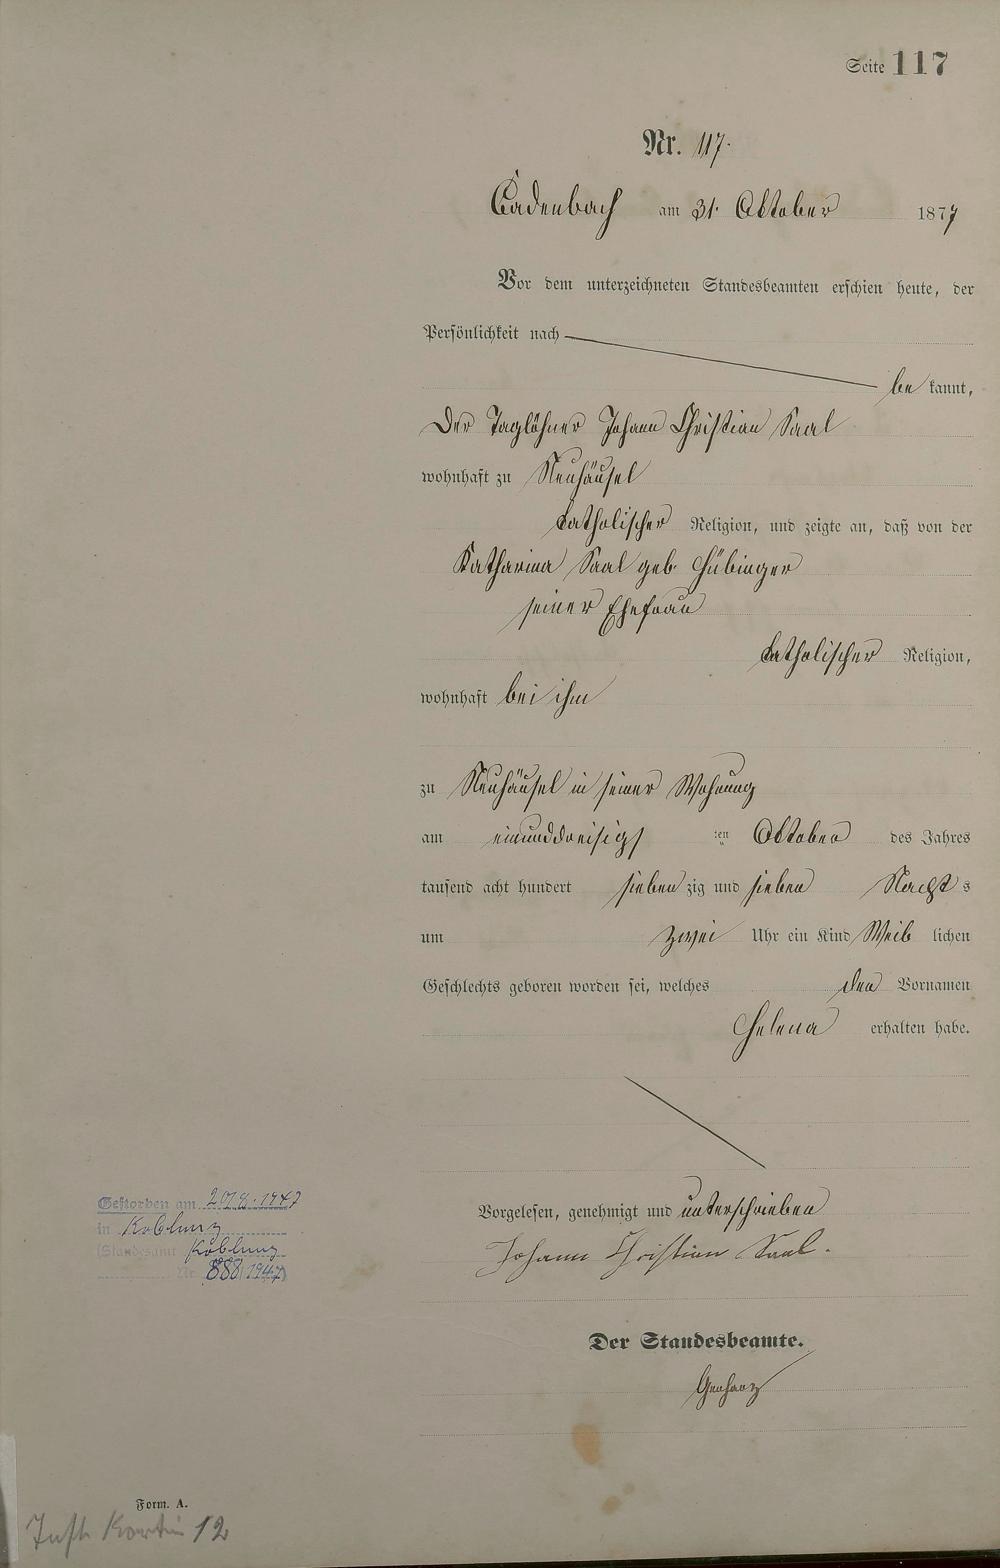 Seite 117
Nr. 117.
Cadenbach am 31. Oktober 1877
Vor dem unterzeichneten Standesbeamten erschien heute, der
Persönlichkeit nach
be kannt,
Der Taglöhner Johann Christian Saal
wohnhaft zu Neuhäusel
katholischer Religion, und zeigte an, daß von der
Katharina Saal geb. Hübinger
seiner Ehefrau
katholischer Religion,
wohnhaft bei ihm
zu Neuhäusel in seiner Wohnung
am einunddreisigs ten Oktober des Jahres
tausend acht hundert sieben zig und sieben Nacht s
um zwei Uhr ein Kind Weib lichen
Geschlechts geboren worden sei, welches den Vornamen
Helena erhalten habe.
Vorgelesen, genehmigt und unterschrieben
Johann Christian Saal.
Gestorben am 1947
in Koblenz
(Standesamt Koblenz
Nr. 888/1947)
Der Standesbeamte.
Form. A.
12